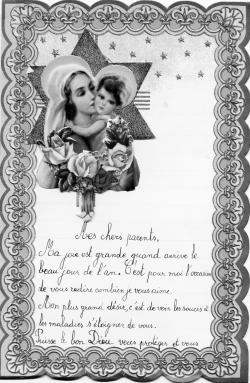 Mes chers parents,
Ma joie est grande quand arrive le
beau jour de l'an. C'est pour moi l'occasion
de vous redire combien je vous aime.
Mon plus grand désir, c'est de voir les soucis et
les maladies s'éloigner de vous.
Puisse le bon Dieu vous protéger et vous